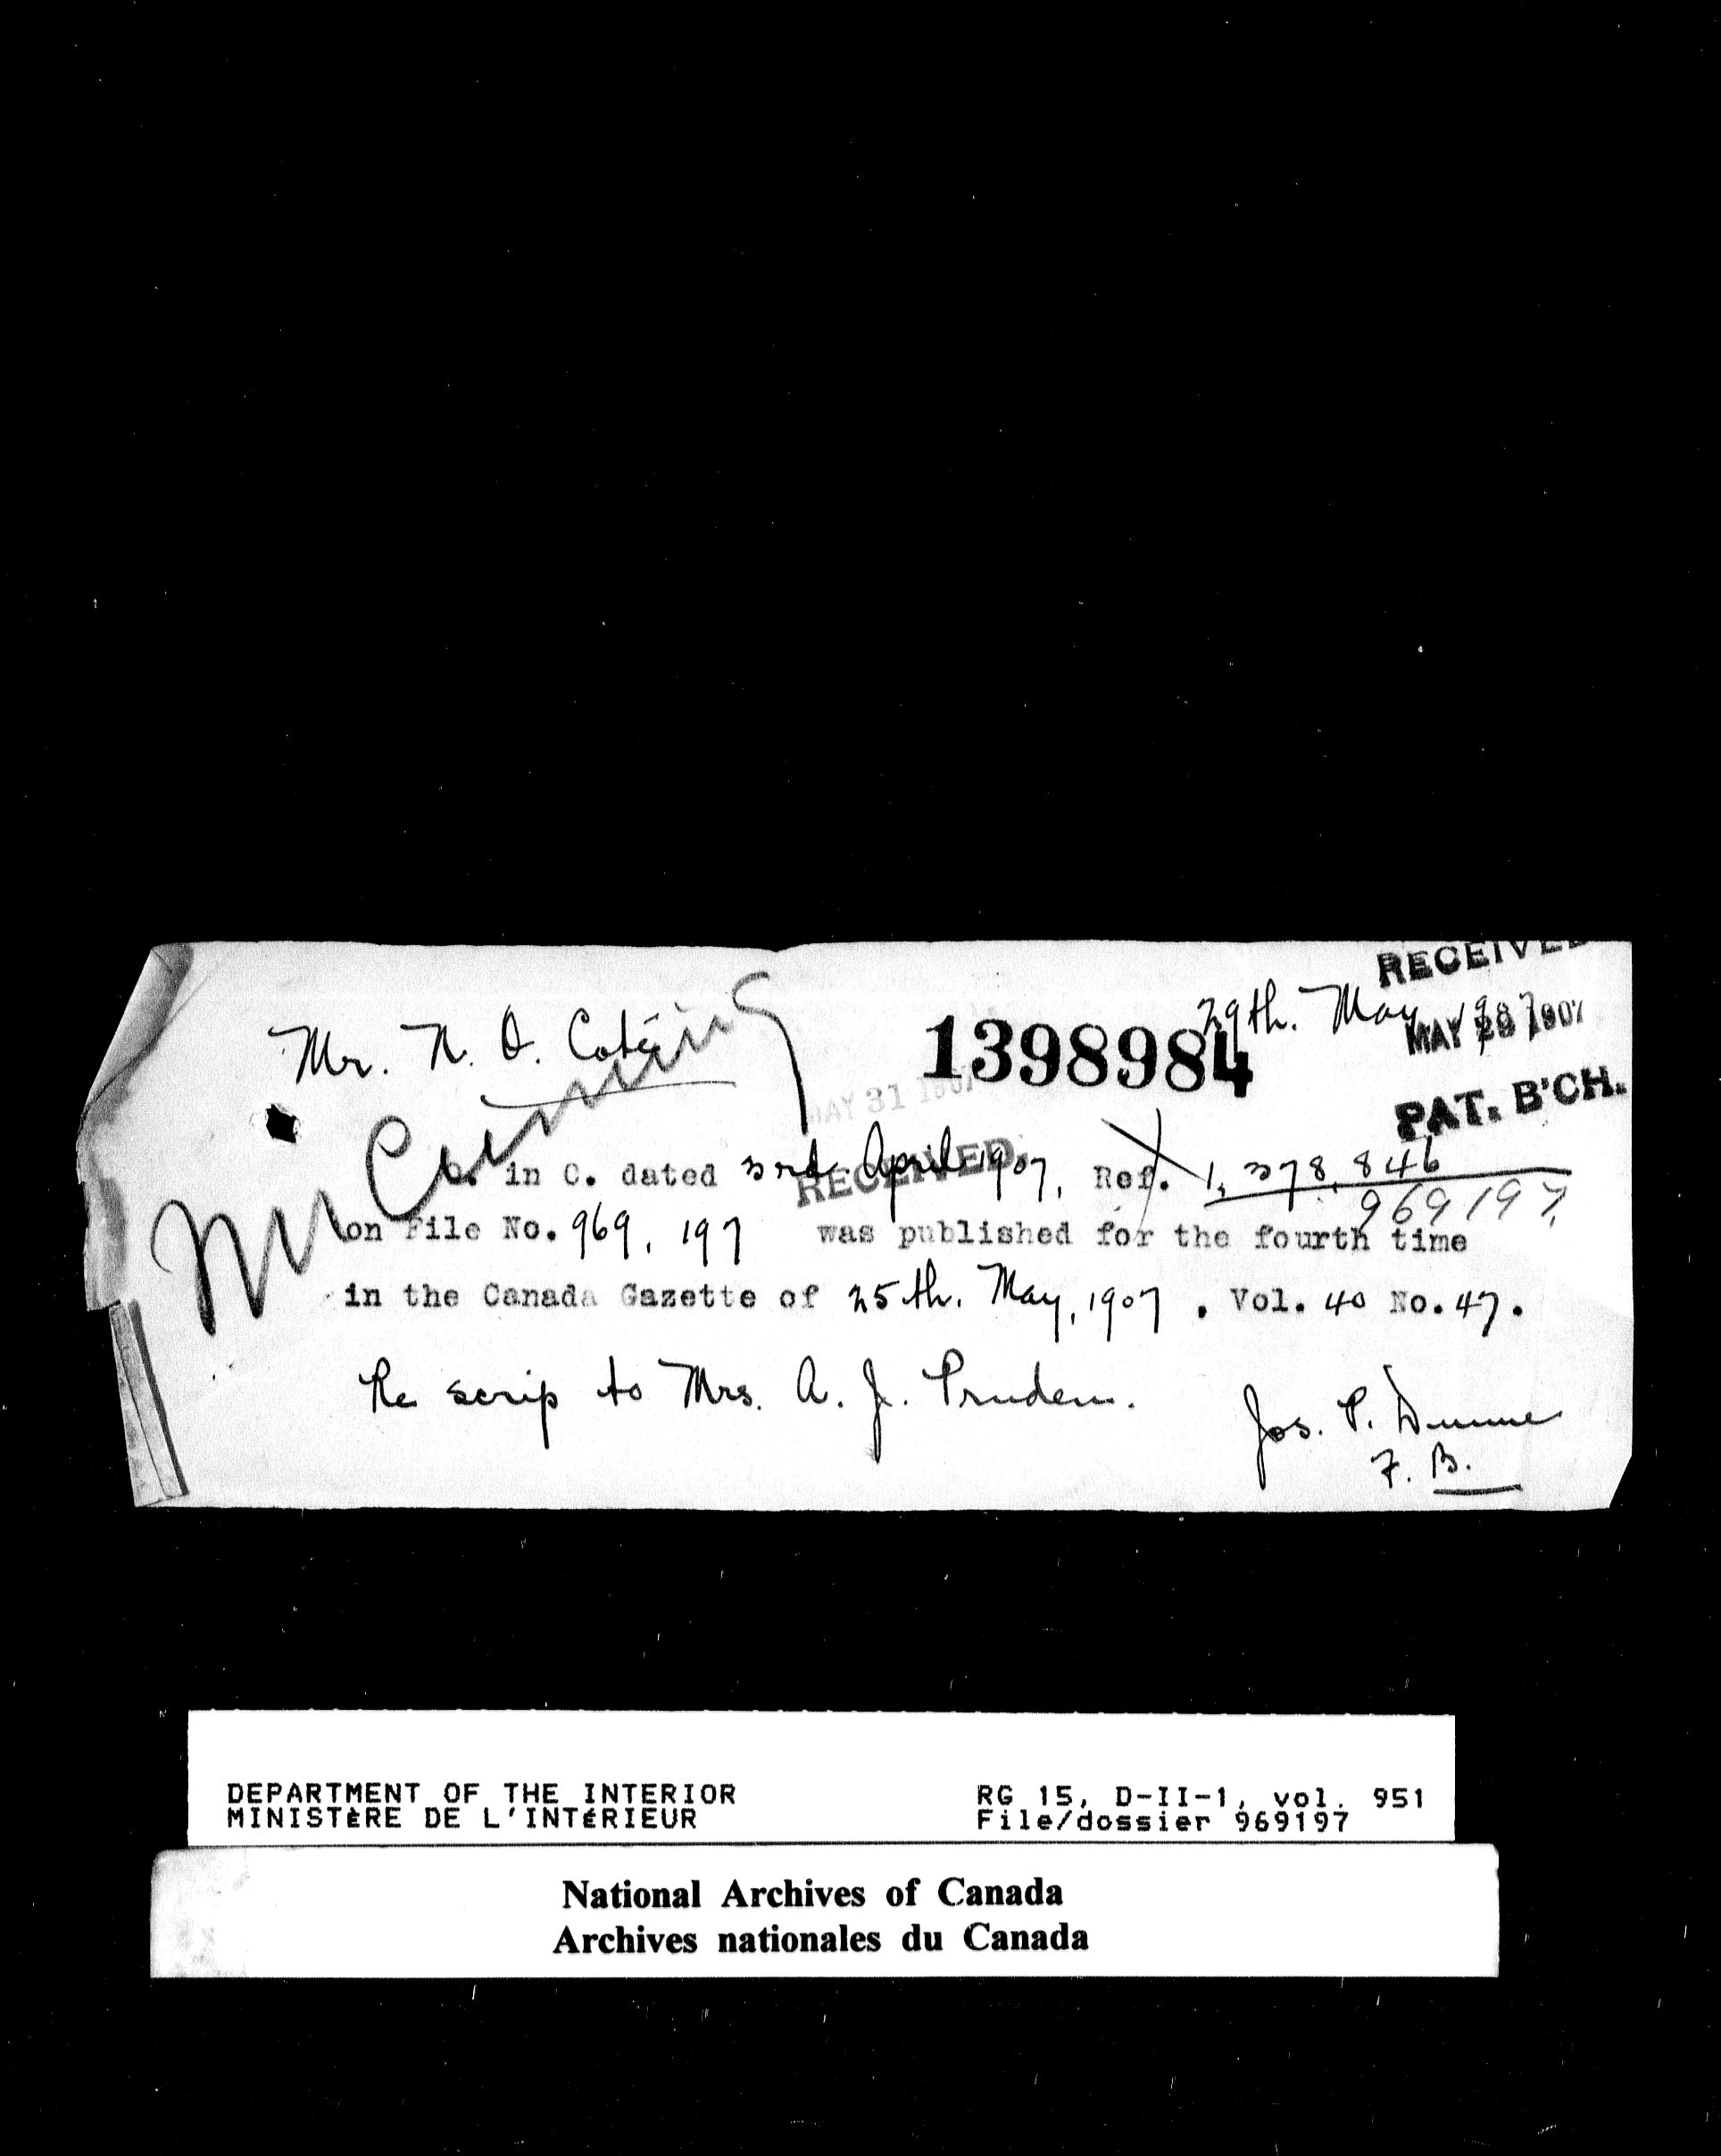 RECEIVED
29th. May, 1907
MAY 29 1907
Mr. N. O. Coté
1398984
MAY 31 1907
PAT. B'CH.
RECEIVED.
Mr Cuming
O. in C. dated 3rd April 1907, Ref. 1,378,846
969197,
on File No. 969,197 was published for the fourth time
in the Canada Gazette of 25th. May, 1907 . Vol. 40 No. 47.
Re scrip to Mrs. A. J. Pruden.
Jos. P. Dunne
F. B.
DEPARTMENT OF THE INTERIOR RG 15, D-II-1, vol. 951
MINISTÈRE DE L'INTÉRIEUR File/dossier 969197
National Archives of Canada
Archives nationales du Canada